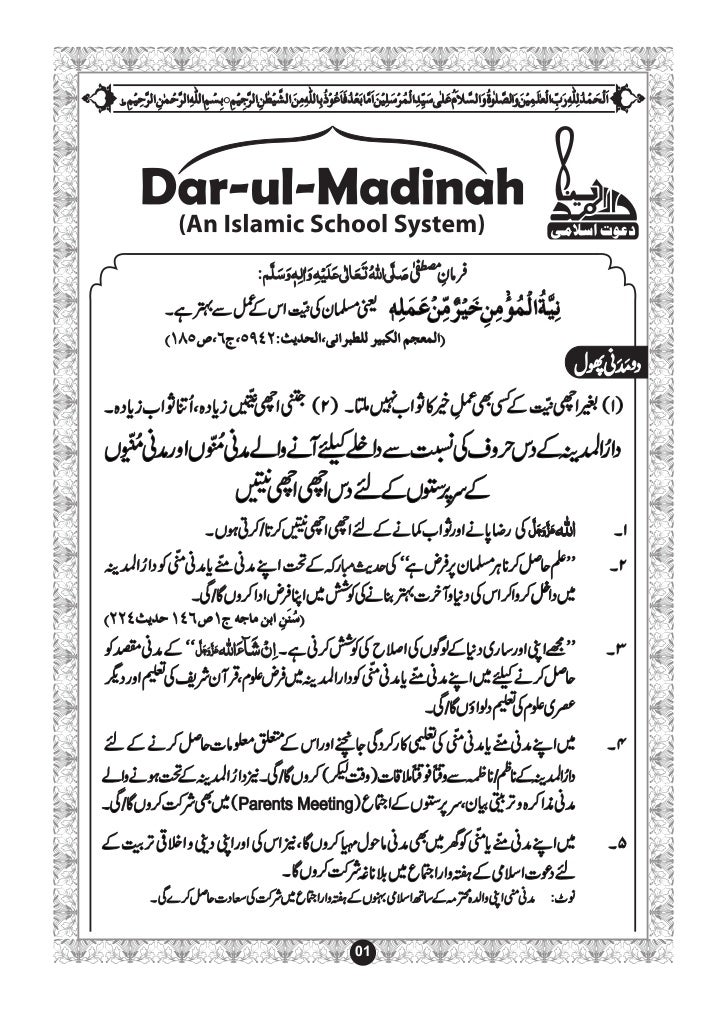 اَلْحَمْدُ لِلّٰهِ رَبِّ الْعٰلَمِيْنَ وَالصَّلٰوةُ وَالسَّلَامُ عَلٰى سَيِّدِ الْمُرْسَلِيْنَ اَمَّا بَعْدُ فَاَعُوْذُ بِاللّٰهِ مِنَ الشَّيْطٰنِ الرَّجِيْمِ ؕ بِسْمِ اللّٰهِ الرَّحْمٰنِ الرَّحِيْمِ ؕ
Dar-ul-Madinah
(An Islamic School System)
دار المدینہ
دعوت اسلامی
فرمانِ مصطفیٰ صَلَّی اللہُ تَعَالٰی عَلَیْہِ وَاٰلِہٖ وَسَلَّم:
نِیَّةُ الْمُؤْمِنِ خَیْرٌ مِّنْ عَمَلِهٖ یعنی مسلمان کی نیّت اس کے عمل سے بہتر ہے۔
(المعجم الکبیر للطبرانی،الحدیث:۵۹۴۲،ج۶،ص۱۸۵)
دو مَدَنی پھول
(۱) بغیر اچھی نیّت کے کسی بھی عملِ خیر کا ثواب نہیں ملتا۔ (۲) جتنی اچھی نیّتیں زیادہ، اُتنا ثواب زیادہ۔
دارُ المدینہ کے دس حروف کی نسبت سے داخلے کیلئے آنے والے مدنی مُنّوں اور مدنی مُنّیوں
کے سرپرستوں کے لئے دس اچھی اچھی نیتیں
۱۔ اللہ عَزَّوَجَلَّ کی رضا پانے اور ثواب کمانے کے لئے اچھی اچھی نیتیں کرتا/کرتی ہوں۔
۲۔ ”علم حاصل کرنا ہر مسلمان پر فرض ہے“ کی حدیث مبارکہ کے تحت اپنے مدنی منّے یا مدنی منّی کو دارُ المدینہ
میں داخل کروا کر اس کی دنیا و آخرت بہتر بنانے کی کوشش میں اپنا فرض ادا کروں گا/گی۔
(سُنَنِ ابن ماجہ ج۱ ص۱۴۶ حدیث۲۲۴)
۳۔ ”مجھے اپنی اور ساری دنیا کے لوگوں کی اصلاح کی کوشش کرنی ہے۔ اِنْ شَآءَ اللہ عَزَّوَجَلَّ“ کے مدنی مقصد کو
حاصل کرنے کیلئے میں اپنے مدنی منّے یا مدنی منّی کو دار المدینہ میں فرض علوم، قرآن شریف کی تعلیم اور دیگر
عصری علوم کی تعلیم دلواؤں گا/گی۔
۴۔ میں اپنے مدنی منّے یا مدنی منّی کی تعلیمی کارکردگی جانچنے اور اس کے متعلق معلومات حاصل کرنے کے لئے
دارُ المدینہ کے ناظم/ناظمہ سے وقتاً فوقتاً ملاقات (وقت لیکر) کروں گا/گی۔ نیز دارُ المدینہ کے تحت ہونے والے
مدنی مذاکرہ و تربیتی بیان، سرپرستوں کے اجتماع (Parents Meeting) میں بھی شرکت کروں گا/گی۔
۵۔ میں اپنے مدنی منّے یا منّی کو گھر میں بھی مدنی ماحول مہیا کروں گا، نیز اس کی اور اپنی دینی و اخلاقی تربیت کے
لئے دعوت اسلامی کے ہفتہ وار اجتماع میں بلاناغہ شرکت کروں گا۔
نوٹ: مدنی منی اپنی والدہ محترمہ کے ساتھ اسلامی بہنوں کے ہفتہ وار اجتماع میں شرکت کی سعادت حاصل کرے گی۔
01